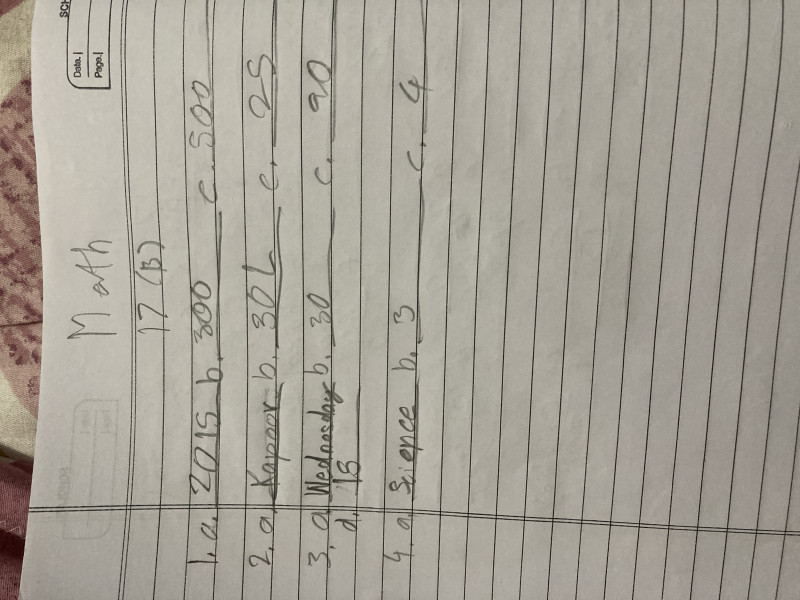 SCH
Date.|
Page.|
Math
17 (B)
1. a. 2015 b. 300 c. 500
2. a. Kapoor b. 30 L c. 25
3. a. Wednesday b. 30 c. 90
d. 15
4. a. Science b. 3 c. 4